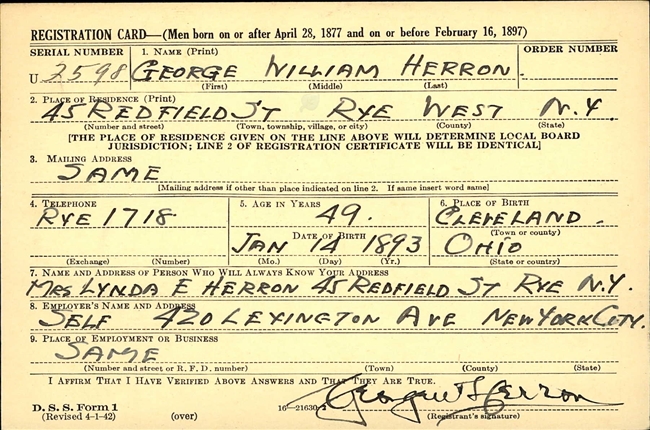 REGISTRATION CARD—(Men born on or after April 28, 1877 and on or before February 16, 1897)
SERIAL NUMBER 1. NAME (Print) ORDER NUMBER
U 2598 GEORGE WILLIAM HERRON.
(First) (Middle) (Last)
2. PLACE OF RESIDENCE (Print)
45 REDFIELD ST RYE WEST N.Y.
(Number and street) (Town, township, village, or city) (County) (State)
[THE PLACE OF RESIDENCE GIVEN ON THE LINE ABOVE WILL DETERMINE LOCAL BOARD
JURISDICTION; LINE 2 OF REGISTRATION CERTIFICATE WILL BE IDENTICAL]
3. MAILING ADDRESS
SAME
[Mailing address if other than place indicated on line 2. If same insert word same]
4. TELEPHONE 5. AGE IN YEARS 6. PLACE OF BIRTH
RYE 1718 49. CLEVELAND.
DATE OF BIRTH (Town or county)
JAN 14 1893 OHIO
(Exchange) (Number) (Mo.) (Day) (Yr.) (State or country)
7. NAME AND ADDRESS OF PERSON WHO WILL ALWAYS KNOW YOUR ADDRESS
MRS LYNDA E HERRON 45 REDFIELD ST RYE N.Y.
8. EMPLOYER'S NAME AND ADDRESS
SELF 420 LEXINGTON AVE NEW YORK CITY.
9. PLACE OF EMPLOYMENT OR BUSINESS
SAME
(Number and street or R. F. D. number) (Town) (County) (State)
I AFFIRM THAT I HAVE VERIFIED ABOVE ANSWERS AND THAT THEY ARE TRUE.
George W Herron
D. S. S. Form 1
(Revised 4-1-42) (over) 16—21630-2 (Registrant's signature)